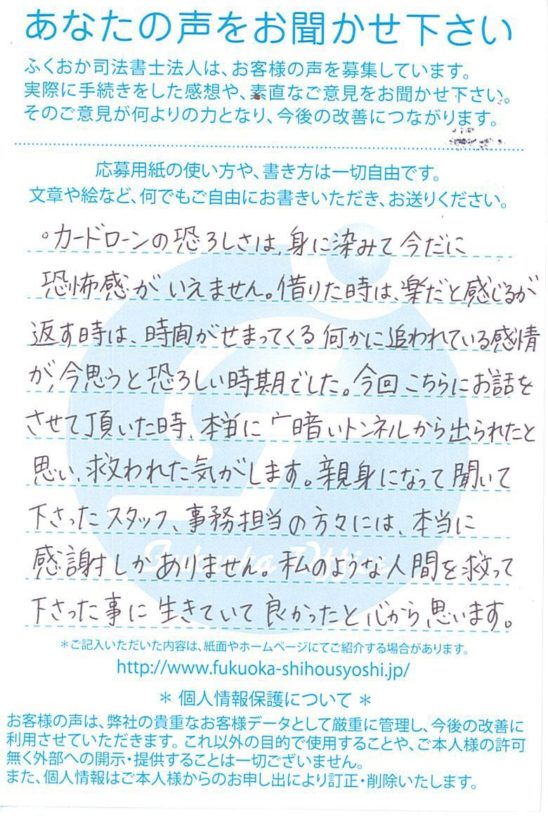 あなたの声をお聞かせ下さい
ふくおか司法書士法人は、お客様の声を募集しています。
実際に手続きをした感想や、素直なご意見をお聞かせ下さい。
そのご意見が何よりの力となり、今後の改善につながります。
応募用紙の使い方や、書き方は一切自由です。
文章や絵など、何でもご自由にお書きいただき、お送りください。
。カードローンの恐ろしさは、身に染みて今だに
恐怖感がいえません。借りた時は、楽だと感じるが
返す時は、時間がせまってくる何かに追われている感情
が、今思うと恐ろしい時期でした。今回こちらにお話を
させて頂いた時、本当に「暗いトンネルから出られたと
思い、救われた気がします。親身になって聞いて
下さったスタッフ、事務担当の方々には、本当に
感謝しかありません。私のような人間を救って
下さった事に生きていて良かったと心から思います。
＊ご記入いただいた内容は、紙面やホームページにてご紹介する場合があります。
http://www.fukuoka-shihousyoshi.jp/
＊ 個人情報保護について ＊
お客様の声は、弊社の貴重なお客様データとして厳重に管理し、今後の改善に
利用させていただきます。これ以外の目的で使用することや、ご本人様の許可
無く外部への開示・提供することは一切ございません。
また、個人情報はご本人様からのお申し出により訂正・削除いたします。